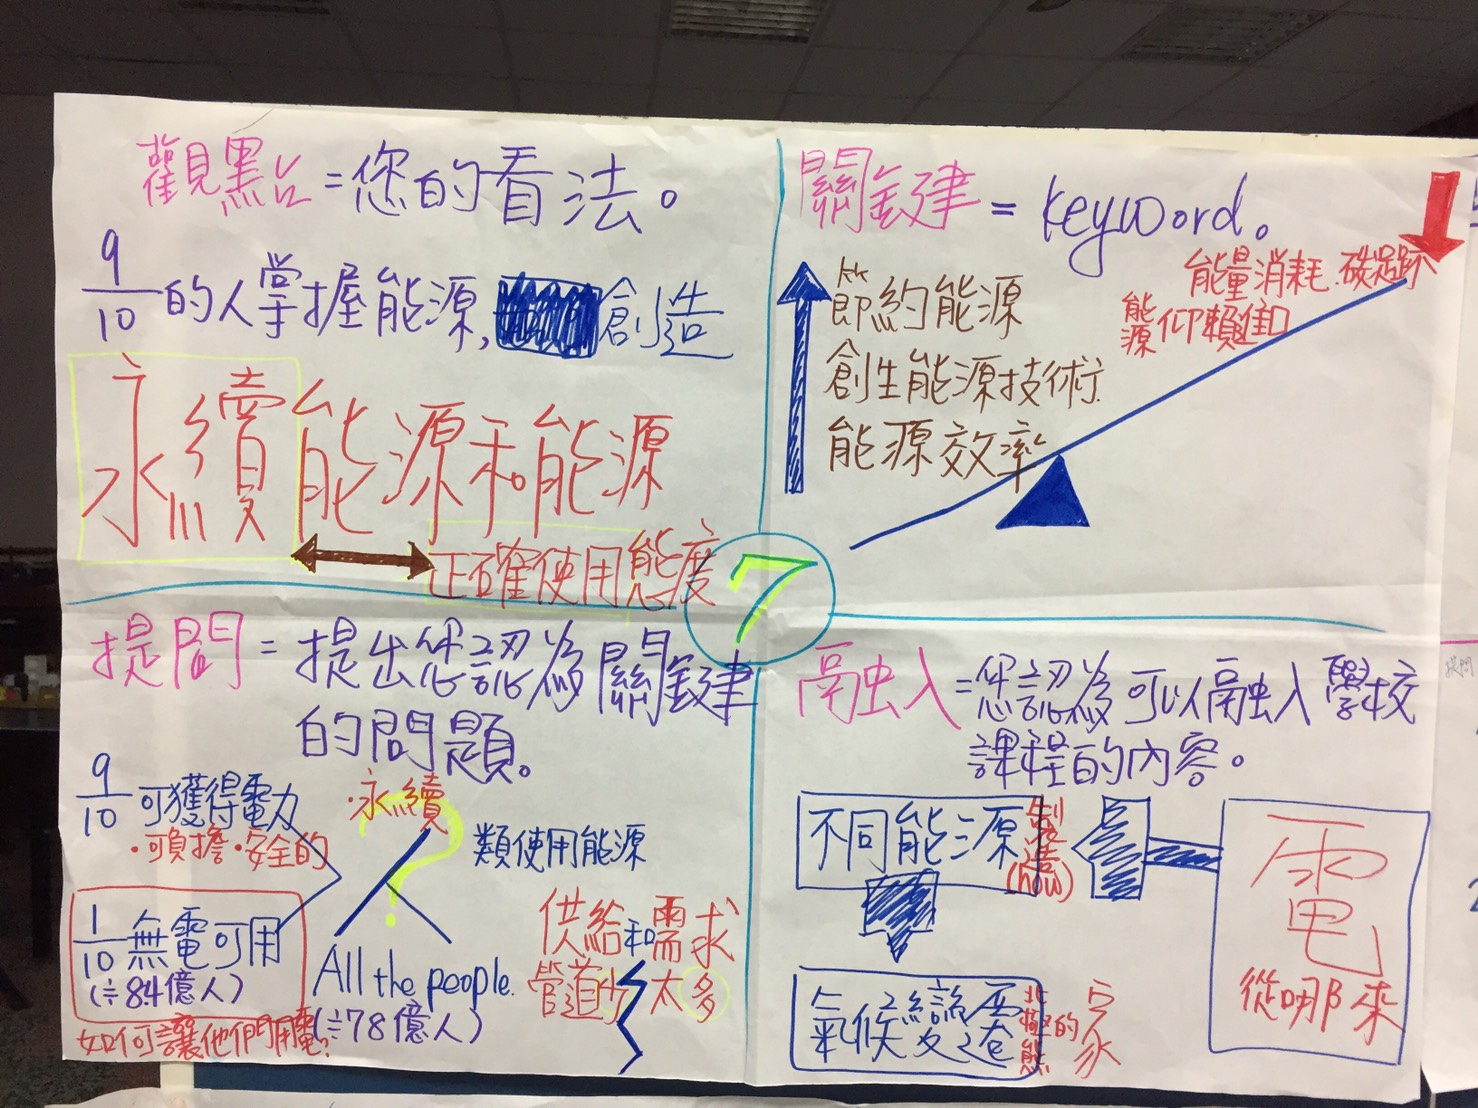 觀點=您的看法。
9/10的人掌握能源,創造
永續能源和能源
正確使用態度
關鍵=keyword。
能量消耗.碳足跡
能源仰賴進口
節約能源
創生能源技術.
能源效率
7
提問=提出您認為關鍵
的問題。
9/10可獲得電力
·可負擔·安全的
·永續
類使用能源
1/10無電可用
(≒84億人)
如何可讓他們用電?
All the people.
(≒78億人)
供給和需求
管道少 太多
融入=您認為可以融入學校
課程的內容。
不同能源
製造(how)
電
從哪來
氣候變遷
北極熊的家